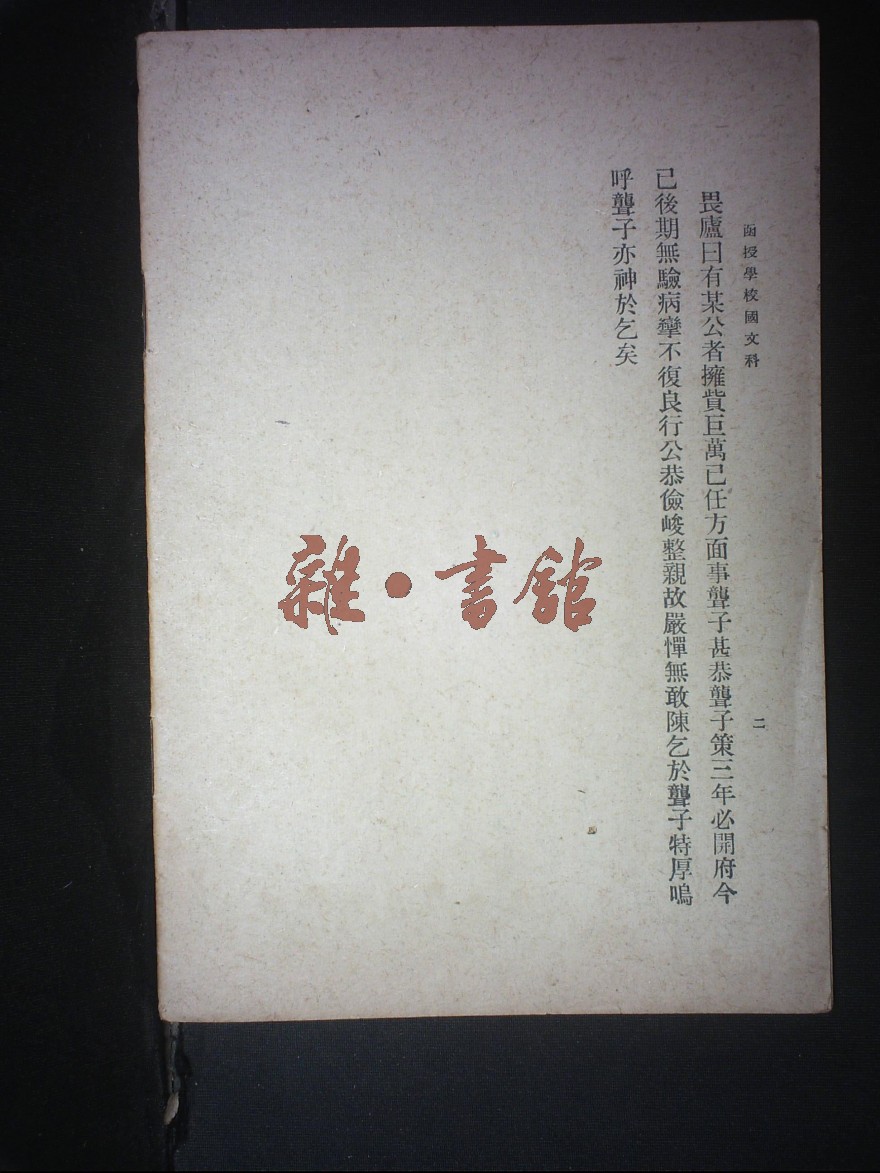 函授學校國文科
二
畏廬曰有某公者擁貲巨萬已任方面事聾子甚恭聾子策三年必開府今
已後期無驗病攣不復良行公恭儉峻整親故嚴憚無敢陳乞於聾子特厚嗚
呼聾子亦神於乞矣
雜·書館